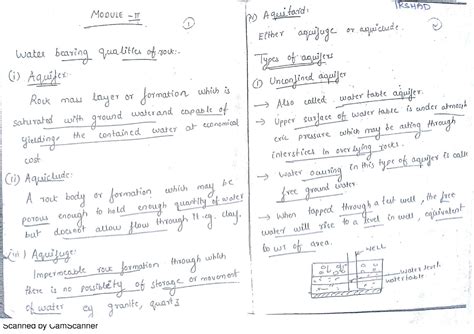 MODULE - II
①
Water bearing qualities of rock:
(i) Aquifer:
Rock mass layer or formation which is
saturated with ground water and capable of
yielding the contained water at economical
cost
(ii) Aquiclude:
A rock body or formation which may be
porous enough to hold enough quantity of water
but doesnot allow flow through it. eg. clay.
(iii) Aquifuge:
Impermeable rock formation through which
there is no possibility of storage or movement
of water eg granite, quartz
Scanned by CamScanner
IRSHAD
②
Aquitard:
Either aquifuge or aquiclude.
Types of aquifers
(1) Unconfined aquifer
→ Also called water table aquifer
→ Upper surface of water table is under atmosp
eric pressure which may be acting through
interstices in overlying rocks.
→ Water in this type of aquifer is called
free ground water.
→ When tapped through a test well, the free
water will rise to a level in well, equivalent
to of area.
WELL
water level
water table